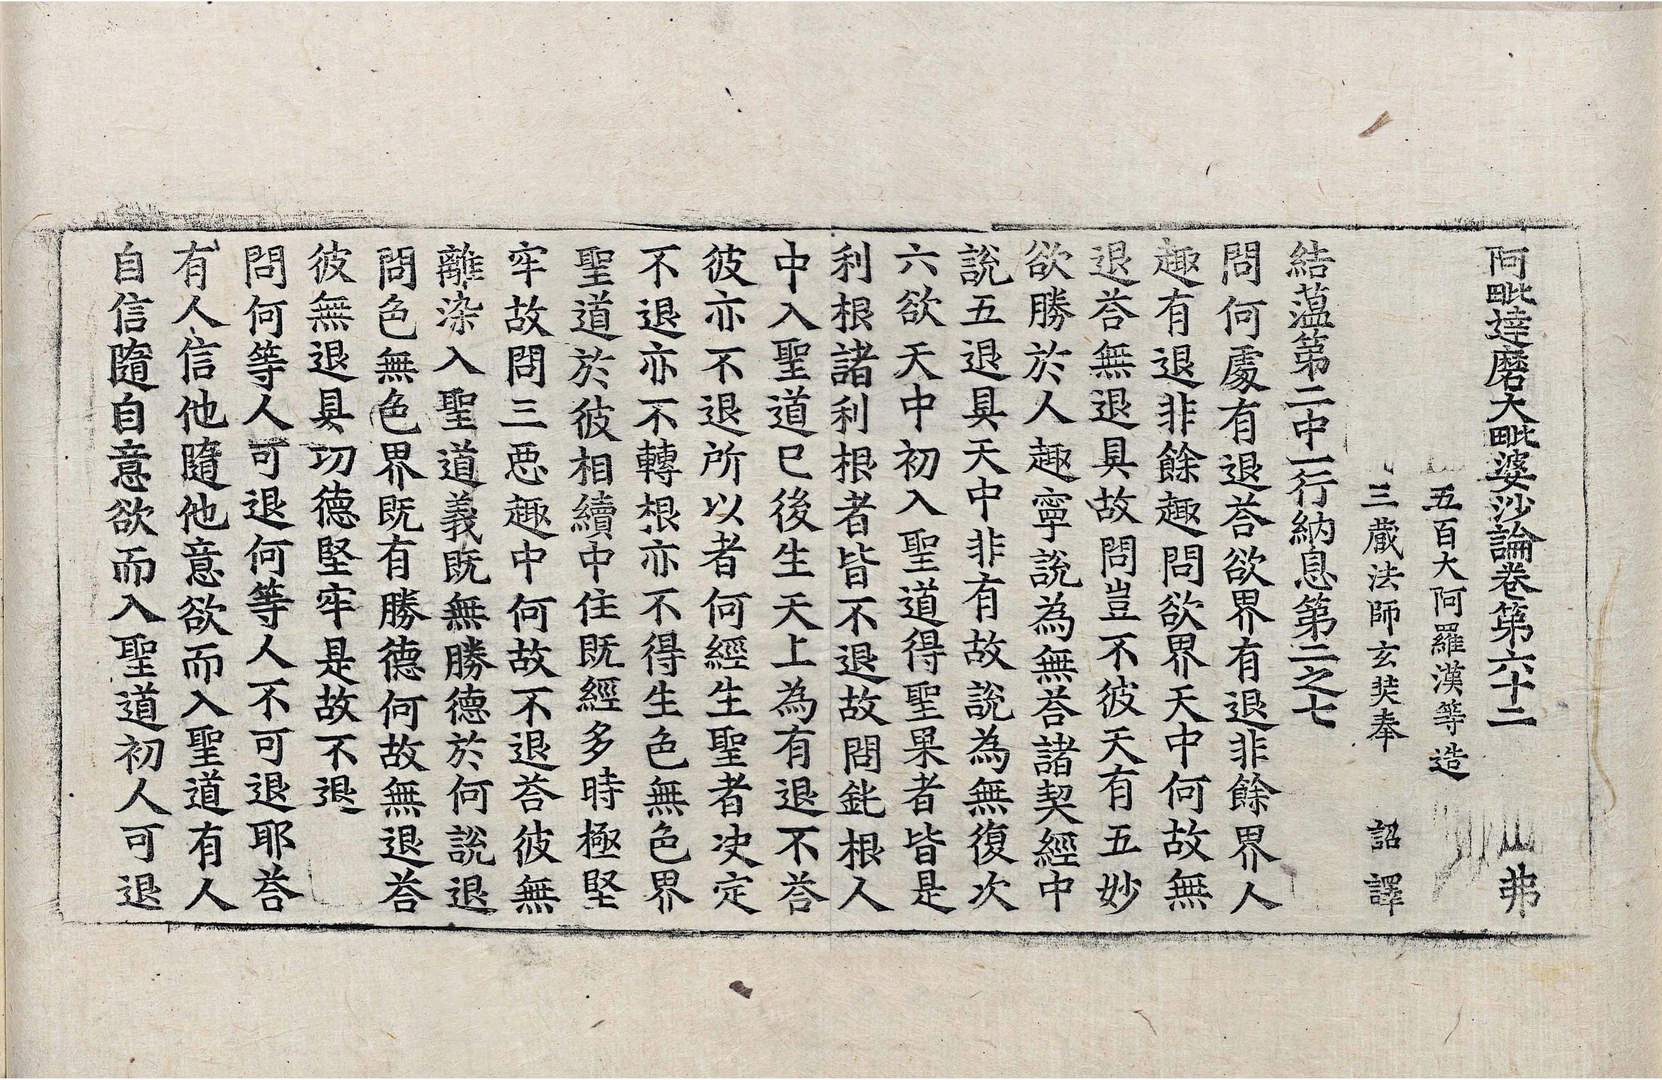 阿毗達磨大毗婆沙論卷第六十二 弗
五百大阿羅漢等造
三藏法師玄奘奉 詔譯
結蘊第二中一行納息第二之七
問何處有退荅欲界有退非餘界人
趣有退非餘趣問欲界天中何故無
退荅無退具故問豈不彼天有五妙
欲勝於人趣寧說為無荅諸契經中
說五退具天中非有故說為無復次
六欲天中初入聖道得聖果者皆是
利根諸利根者皆不退故問鈍根人
中入聖道已後生天上為有退不荅
彼亦不退所以者何經生聖者决定
不退亦不轉根亦不得生色無色界
聖道於彼相續中住既經多時極堅
牢故問三惡趣中何故不退荅彼無
離染入聖道義既無勝德於何說退
問色無色界既有勝德何故無退荅
彼無退具切德堅牢是故不退
問何等人可退何等人不可退耶荅
有人信他隨他意欲而入聖道有人
自信隨自意欲而入聖道初人可退